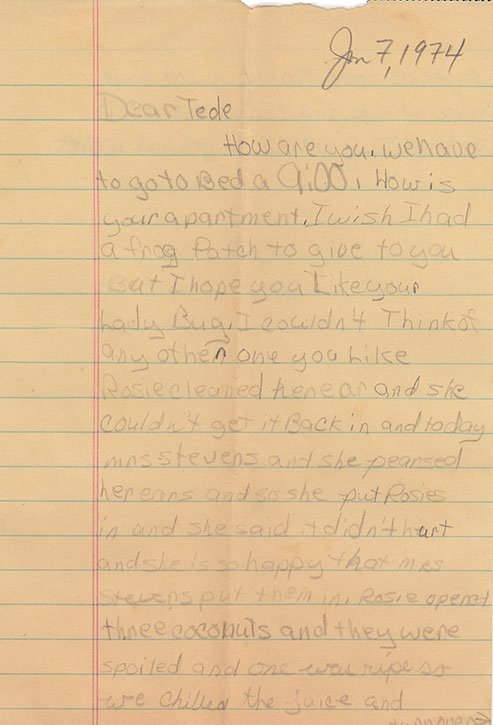 Jan 7, 1974
Dear Tede
How are you. we have
to go to Bed a 9:00. How is
your apartment. I wish I had
a frog Patch to give to you
But I hope you Like your
Lady Bug. I couldn't Think of
any other one you Like
Rosie cleaned her ear and she
couldn't get it Back in and today
mrs stevens and she pearsed
her ears and so she put Rosies
in and she said it didn't hurt
and she is so happy that mrs
stevens put them in. Rosie opened
three coconuts and they were
spoiled and one was ripe so
we chilled the juice and